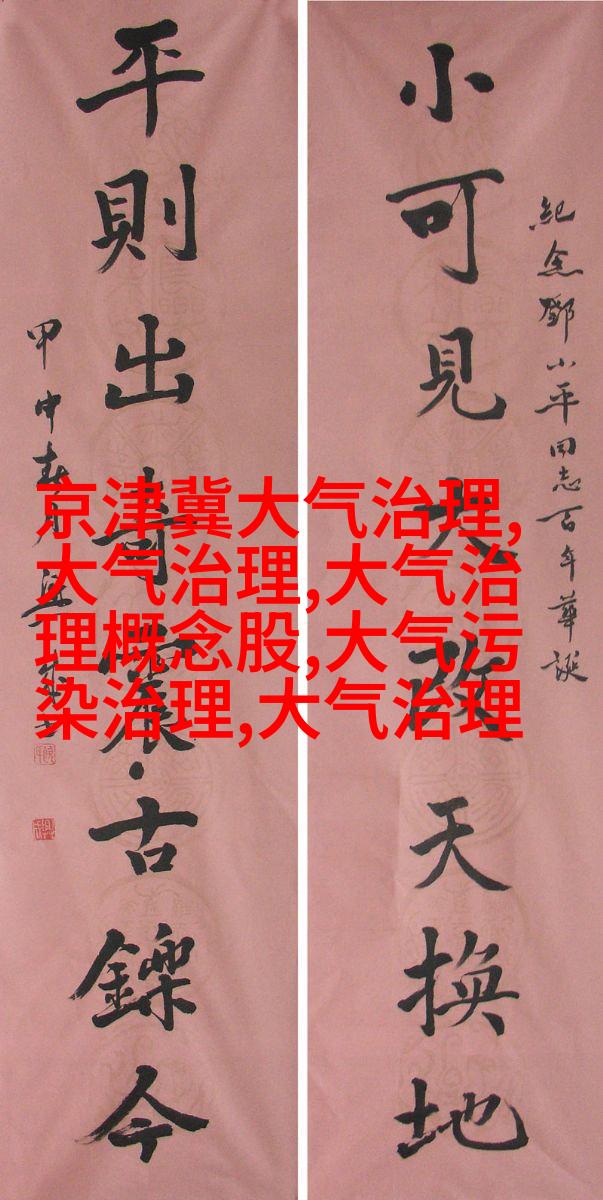 紀念鄧小平同志百年華誕
小可見大改天換地
平則出奇震古鑠今
甲申春月
京津冀大气治理,
大气治理,大气治
理概念股,大气污
染治理,大气治理